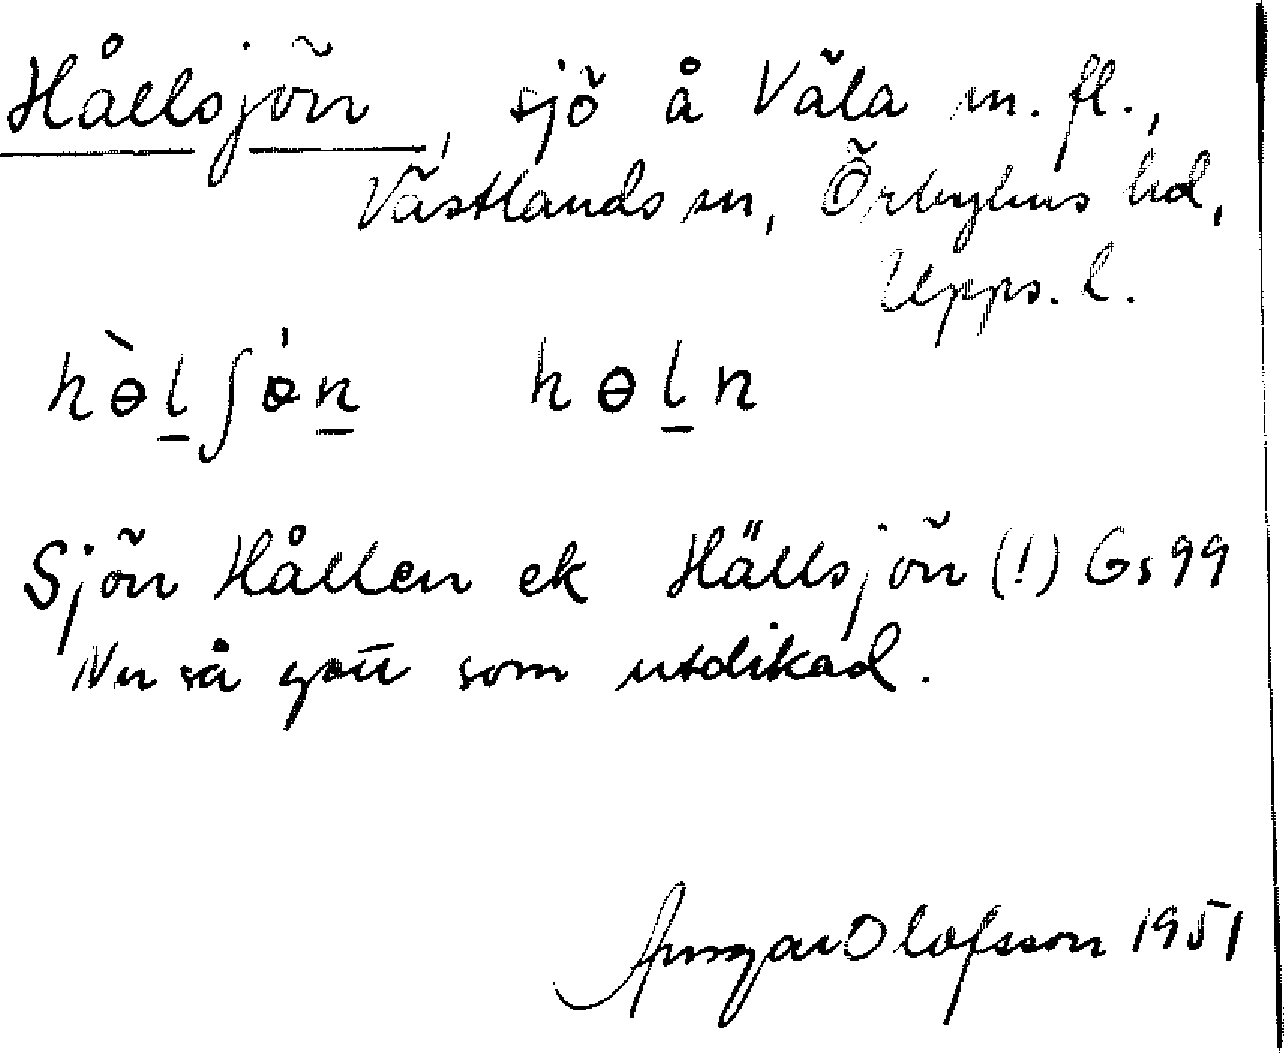 Hållsjön, sjö å Väla m. fl.,
Västlands sn, Örbyhus hd,
Upps. l.
hɵ̀l̲ʃɵ́n̲ hɵl̲n
Sjön Hållen ek Hällsjön (!) Gs 99
Nu så gott som utdikad.
Ansgar Olofsson 1951